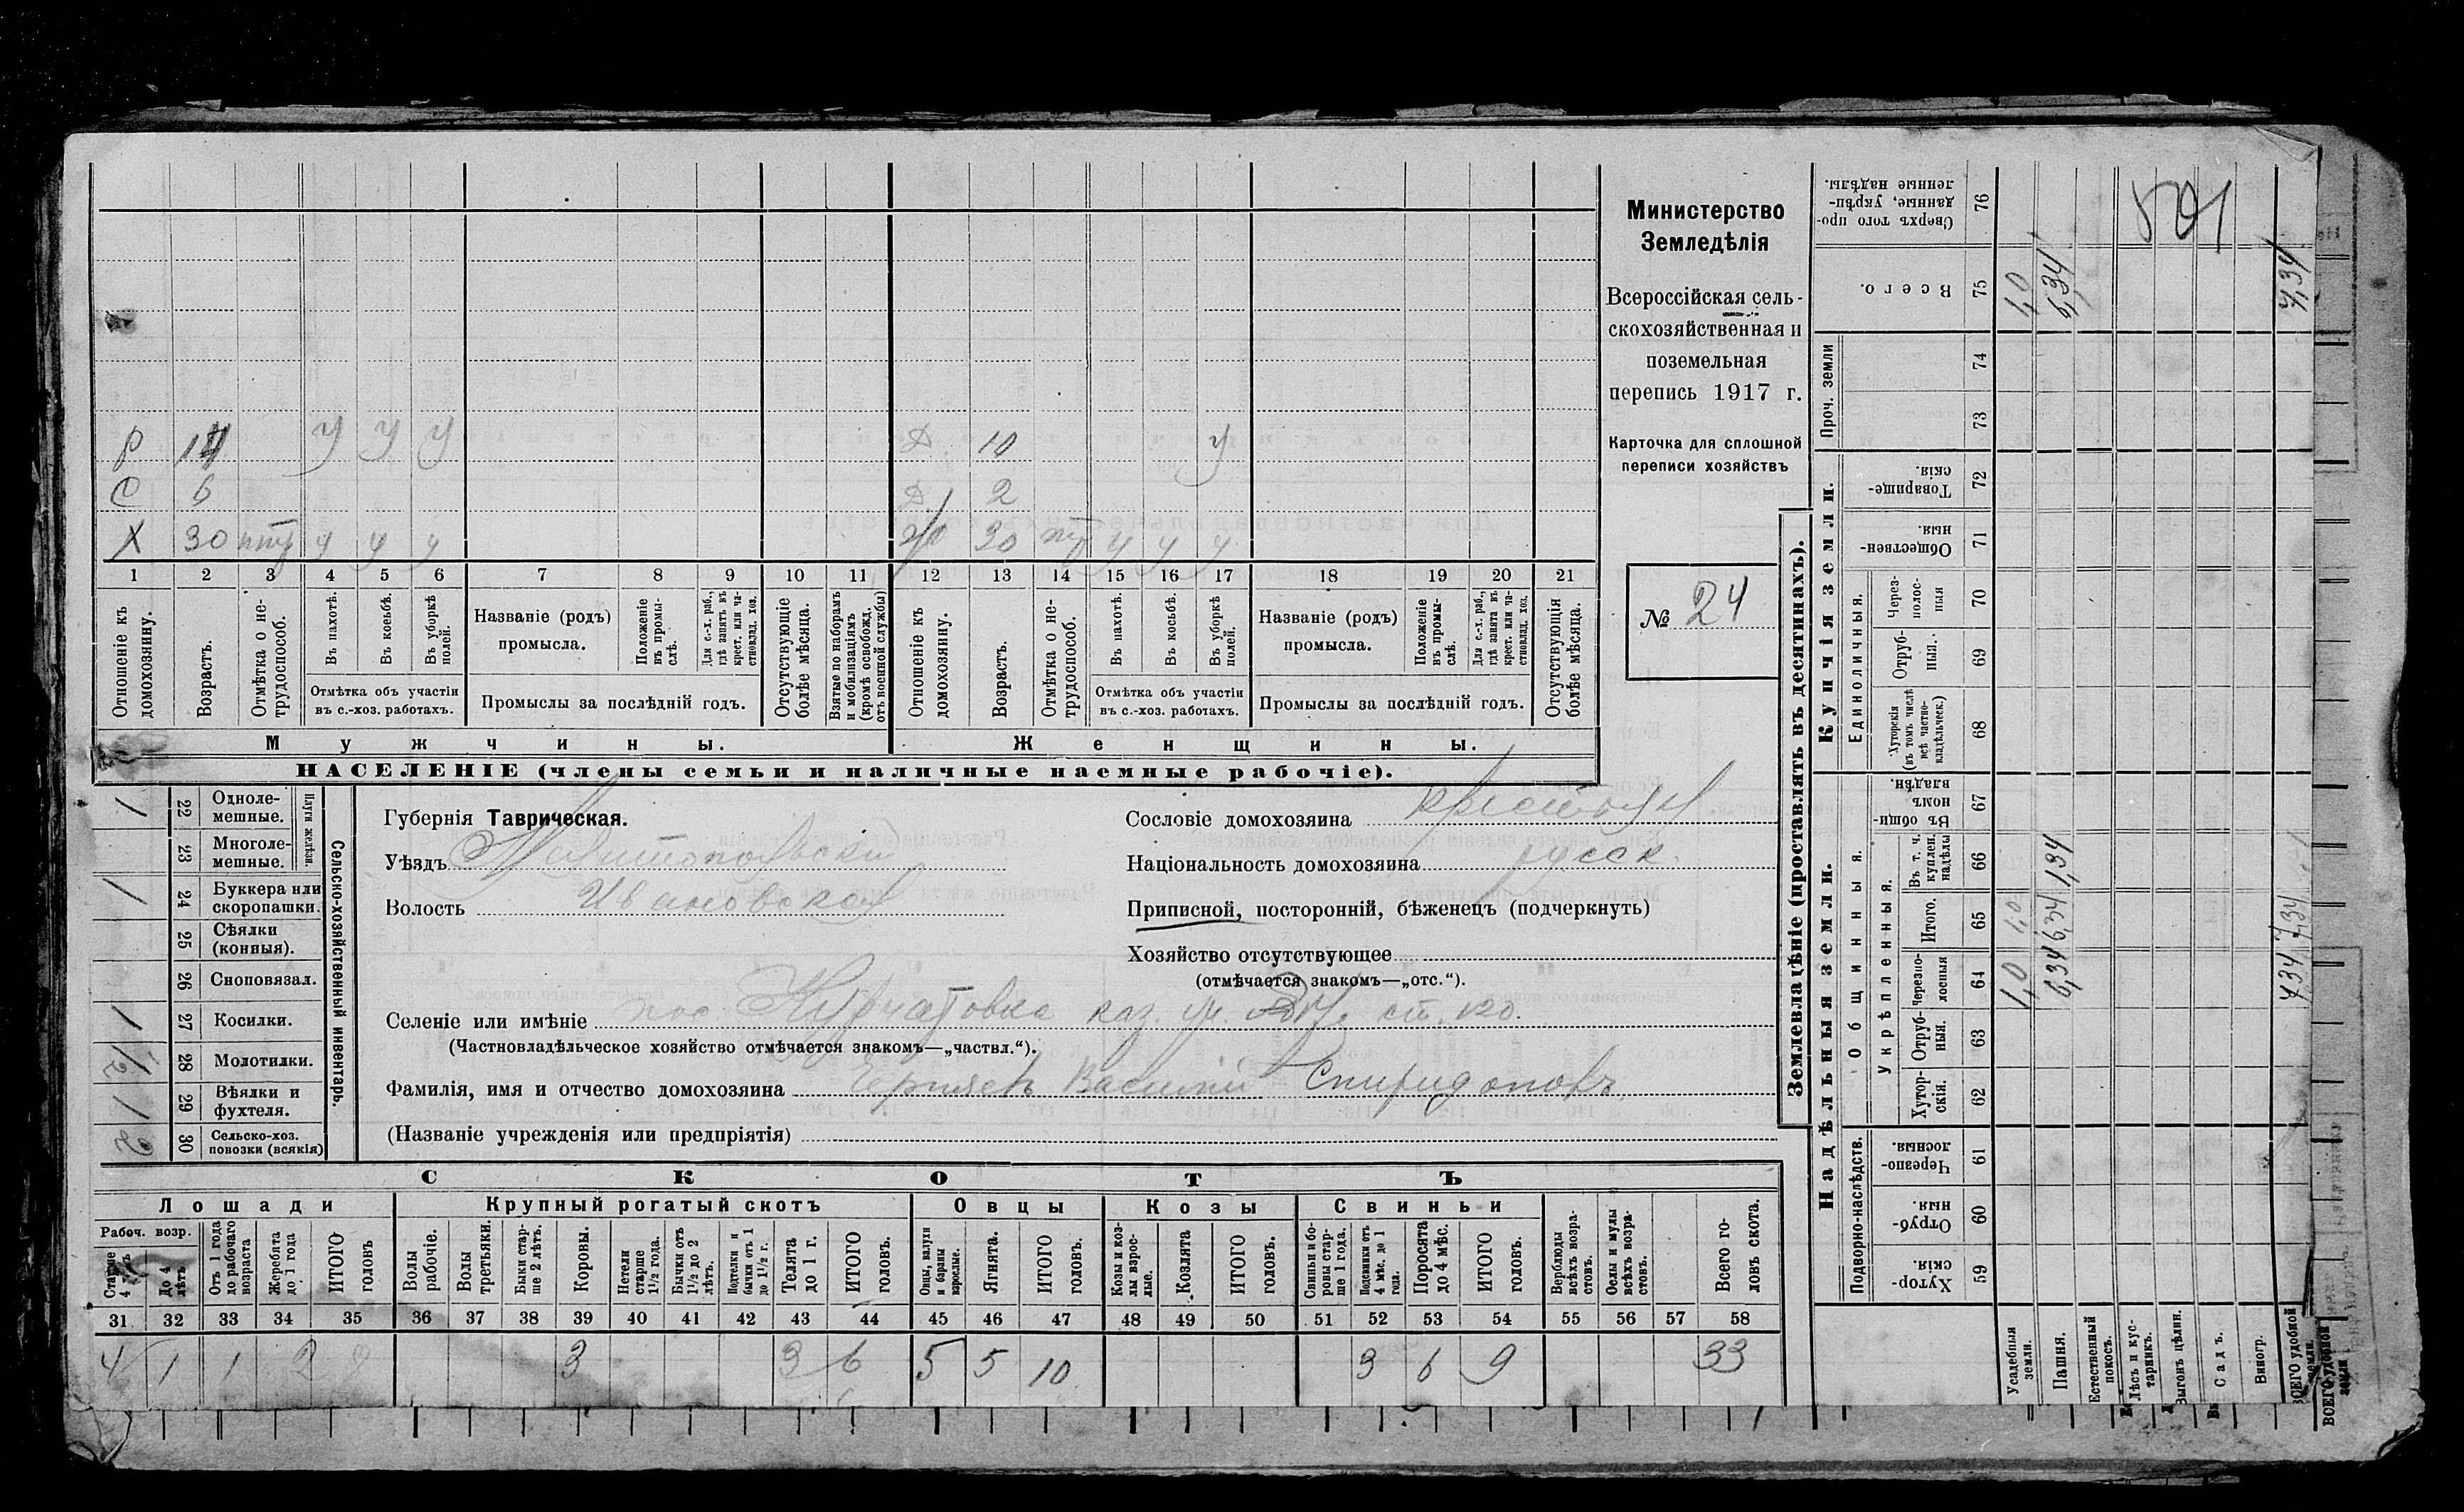 Министерство
Земледѣлія
Всероссійская сель-
скохозяйственная и
поземельная
перепись 1917 г.
Карточка для сплошной
переписи хозяйствъ
№ 24
Р 14 у у у Д. 10 у
С 6 Д. 2
Х 30 у у у 30 у у у
1 2 3 4 5 6 7 8 9 10 11 12 13 14 15 16 17 18 19 20 21
Отношеніе къ домохозяину.
Возрастъ.
Отмѣтка о не-трудоспособ.
Въ пахотѣ.
Въ косьбѣ.
Въ уборкѣ полей.
Отмѣтка объ участіи
въ с.-хоз. работахъ.
Названіе (родъ)
промысла.
Положеніе въ промы-слѣ.
Для с.-х. раб., гдѣ занятъ въ крест. или ча-стновлад. хоз.
Промыслы за послѣдній годъ.
Отсутствующіе болѣе мѣсяца.
Взятые по наборамъ и мобилизаціямъ (кромѣ освобожд. отъ военной службы)
Отношеніе къ домохозяину.
Возрастъ.
Отмѣтка о не-трудоспособ.
Въ пахотѣ.
Въ косьбѣ.
Въ уборкѣ полей.
Отмѣтка объ участіи
въ с.-хоз. работахъ.
Названіе (родъ)
промысла.
Положеніе въ промы-слѣ.
Для с.-х. раб., гдѣ занята въ крест. или ча-стновлад. хоз.
Промыслы за послѣдній годъ.
Отсутствующія болѣе мѣсяца.
Мужчины. Женщины.
НАСЕЛЕНІЕ (члены семьи и наличные наемные рабочіе).
Сельско-хозяйственный инвентарь.
Плуги желѣзн.
1 22 Одноле-мешные.
23 Многоле-мешные.
1 24 Буккера или скоропашки.
25 Сѣялки (конныя).
26 Сноповязал.
1 27 Косилки.
1/2 28 Молотилки.
1 29 Вѣялки и фухтеля.
2 30 Сельско-хоз. повозки (всякія)
Губернія Таврическая.
Уѣздъ Мелитопольскій
Волость Ивановская
Сословіе домохозяина
Національность домохозяина русск.
Приписной, посторонній, бѣженецъ (подчеркнуть)
Хозяйство отсутствующее
(отмѣчается знакомъ—„отс.“).
Селеніе или имѣніе пос. Курчатовка каз. уч.
(Частновладѣльческое хозяйство отмѣчается знакомъ—„частвл.“).
Фамилія, имя и отчество домохозяина Василій Спиридоновъ
(Названіе учрежденія или предпріятія)
СКОТЪ
Лошади Крупный рогатый скотъ Овцы Козы Свиньи
Рабоч. возр.
Старше 4 лѣтъ
До 4 лѣтъ
Отъ 1 года до рабочаго возраста
Жеребята до 1 года
ИТОГО головъ
Волы рабочіе.
Волы третьяки.
Быки стар-ше 2 лѣтъ.
Коровы.
Нетели старше 1½ года.
Бычки отъ 1½ до 2 лѣтъ.
Подтелки и бычки отъ 1 до 1½ г.
Телята до 1 г.
ИТОГО головъ.
Овцы, валухи и бараны взрослые.
Ягнята.
ИТОГО головъ.
Козы и коз-лы взрос-лые.
Козлята
ИТОГО головъ.
Свиньи и бо-ровы стар-ше 1 года.
Подсвинки отъ 4 мѣс. до 1 года.
Поросята до 4 мѣс.
ИТОГО головъ.
Верблюды всѣхъ возра-стовъ.
Ослы и мулы всѣхъ возра-стовъ.
Всего го-ловъ скота.
31 32 33 34 35 36 37 38 39 40 41 42 43 44 45 46 47 48 49 50 51 52 53 54 55 56 57 58
4 1 1 2 3 3 6 5 5 10 3 6 9 33
Землевладѣніе (проставлять въ десятинахъ).
Надѣльныя земли. Купчія земли. Проч. земли
Подворно-наслѣдств.
Общинныя.
Укрѣпленныя.
Единоличныя.
Хутор-скія. 59
Отруб-ныя. 60
Черезпо-лосныя. 61
Хутор-скія. 62
Отруб-ныя. 63
Черезпо-лосныя 64
Итого. 65
Въ т. ч. куплен. надѣлы 66
Въ общин-номъ владѣн. 67
Хуторскія (въ томъ числѣ всѣ частно-владѣльческ.) 68
Отруб-ныя. 69
Через-полос-ныя 70
Обществен-ныя. 71
Товарище-скія. 72
73
74
Всего. 75
Сверхъ того про-данные, укрѣп-ленные надѣлы. 76
Усадебныя земли. 1,0 1,0 1,0
Пашня. 6,34 6,34 1,34 6,34
Естественный покосъ.
Лѣсъ и кус-тарникъ.
Выгонъ цѣлин.
Садъ.
Виногр.
ВСЕГО удобной земли. 7,34 7,34 7,34
501
ВСЕГО удобной земли